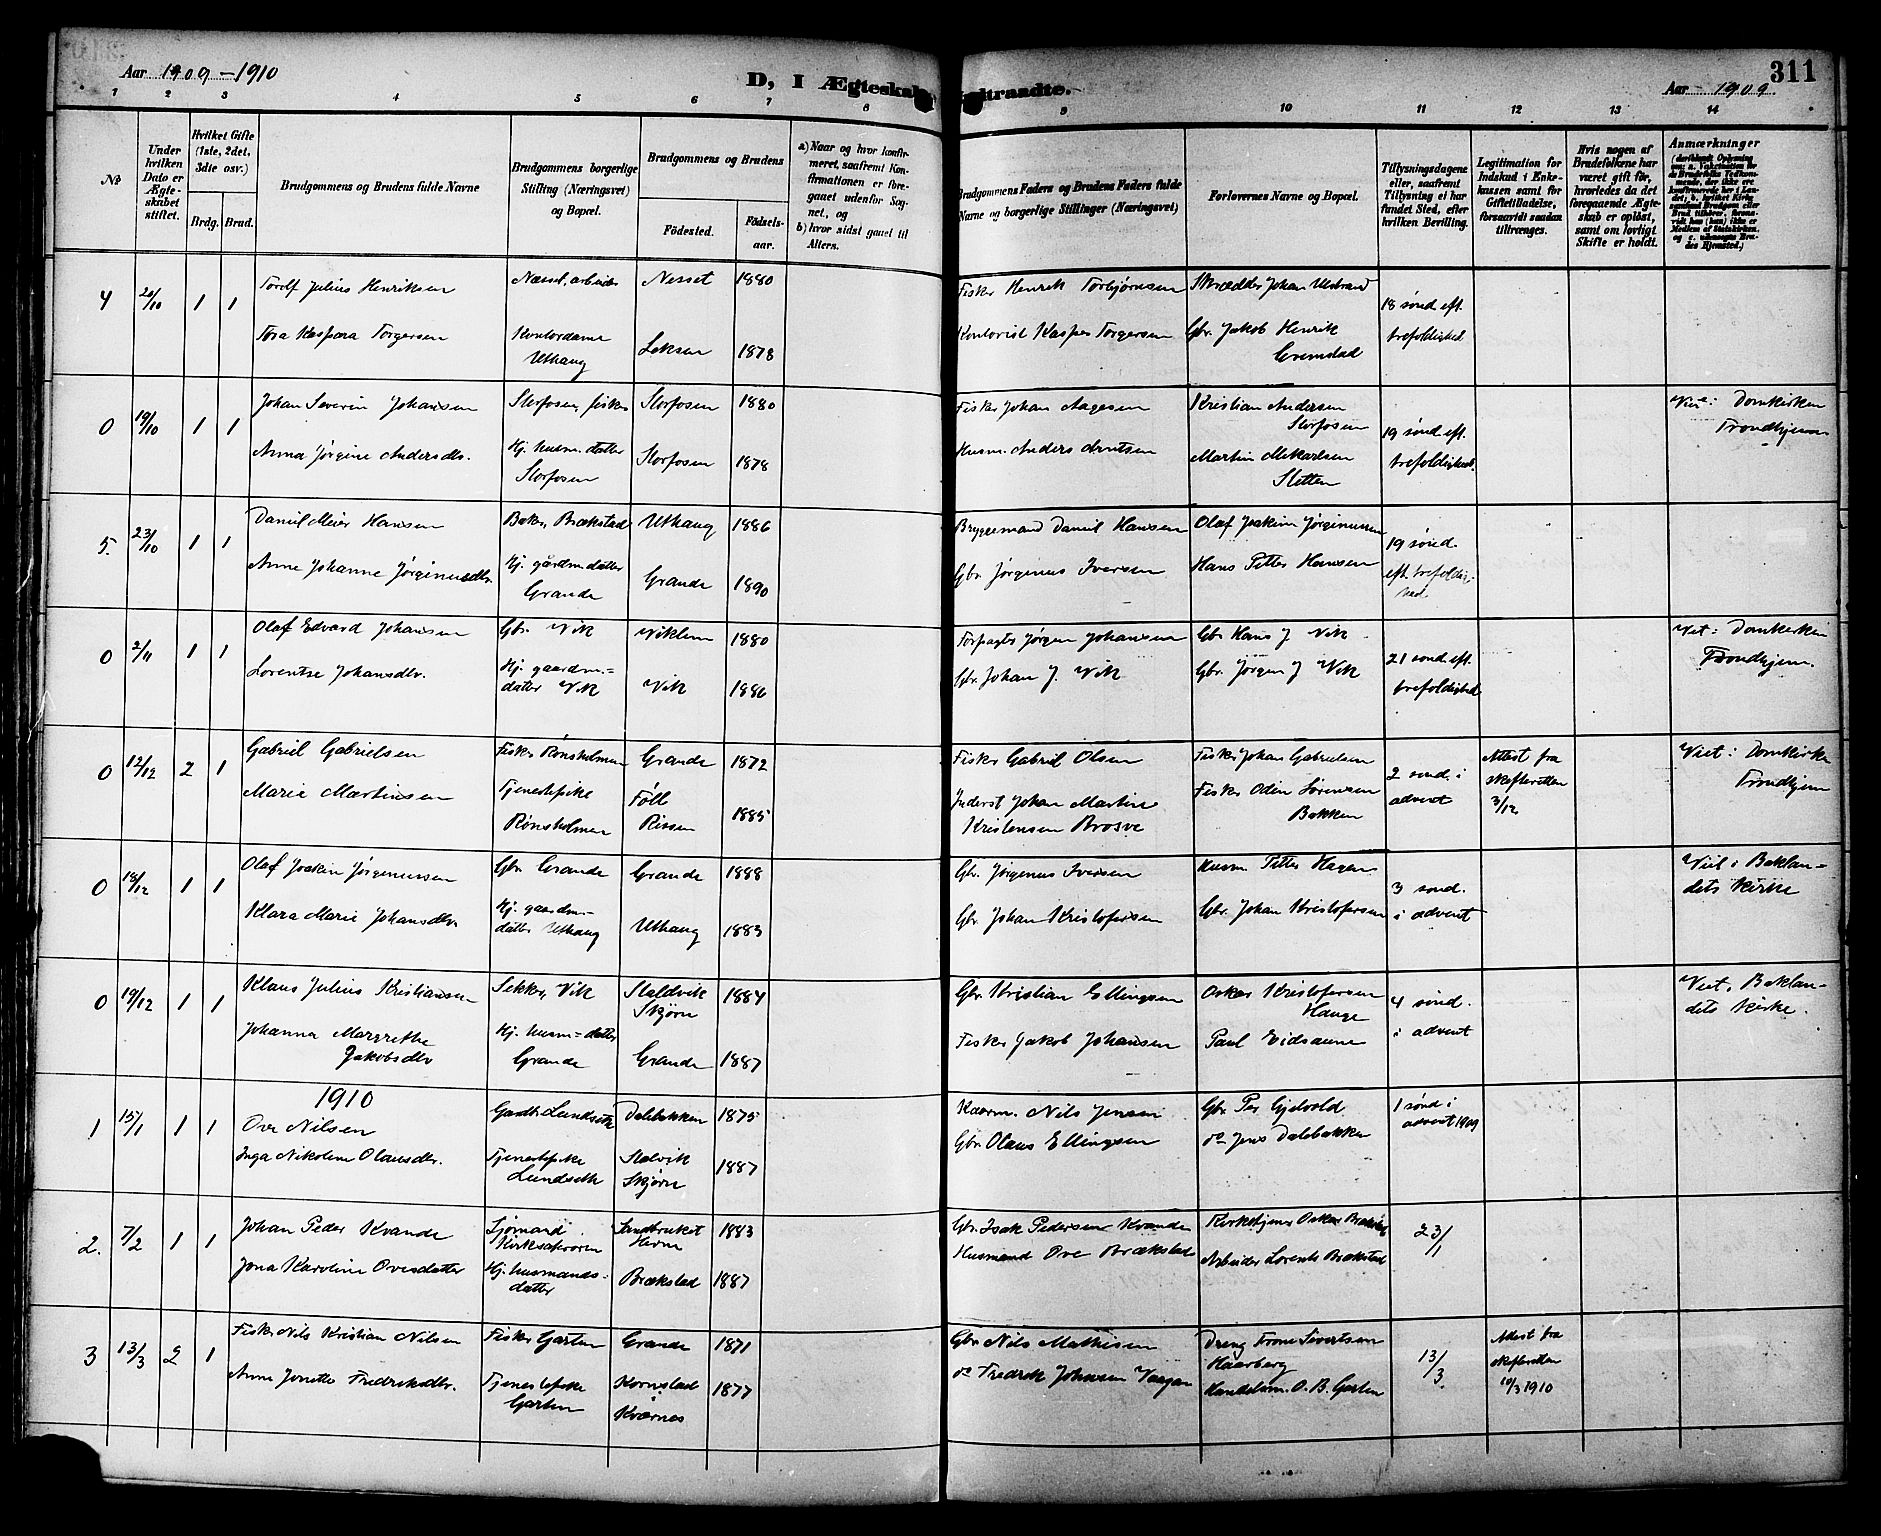 Aar 1909-1910
D, I Ægteskab Indtraadte.
311
Aar 1909
1 2 3 4 5 6 7 8 9 10 11 12 13 14
No
Under hvilken Dato er Ægteskabet stiftet.
Hvilket Gifte (1ste, 2det, 3die osv.)
Brdg. Brud.
Brudgommens og Brudens fulde Navne
Brudgommens borgerlige Stilling (Næringsvei) og Bopæl.
Brudgommens og Brudens
Fødested.
Fødselsaar.
a) Naar og hvor konfirmeret, saafremt Konfirmationen er foregaaet udenfor Sognet, og
b) hvor sidst gaaet til Alters.
Brudgommens Faders og Brudens Faders fulde Navne og borgerlige Stillinger (Næringsvei)
Forlovernes Navne og Bopæl.
Tillysningsdagene eller, saafremt Tillysning ei har fundet Sted, efter hvilken Bevilling.
Legitimation for Indskud i Enkekassen samt for Giftetilladelse, forsaavidt saadan tiltrænges.
Hvis nogen af Brudefolkene har været gift før, hvorledes da det foregaaende Ægteskab er opløst, samt om lovligt Skifte er holdt.
Anmærkninger
4 20/10 1 1 Torolf Julius Henriksen Nesset, arbeider Nesset 1880 Fisker Henrik Torbjørnsen Skrædder Johan Ulstrand 18 sønd eft. trefoldighed
Tora Kaspara Torgersen Kontordame Uthaug Leksen 1878 Kontorist Kasper Torgersen Gbr. Jakob Henrik Gremstad
0 19/10 1 1 Johan Severin Johansen Storfosen, fisker Storfosen 1880 Fisker Johan Aagesen Kristian Andersen Storfosen 19 sønd eft. trefoldighed. Viet i Domkirken Trondhjem
Anna Jørgine Andersdtr. Hj. husm. datter Storfosen Storfosen 1878 Husm. Anders Arntsen Martin Mekarlsen Sletten
5. 23/10 1 1 Daniel Meier Hansen Baker, Brækstad Uthaug 1886 Bryggemand Daniel Hansen Olaf Joakim Jørginussen 19 sønd. eft. trefoldighed
Anne Johanne Jørginusdtr Hj. gårdm. datter Grande Grande 1890 Gbr. Jørginus Iversen Hans Petter Hansen
0 2/11 1 1 Olaf Edvard Johansen Gbr. Vik Viklem 1880 Forpagter Jørgen Johansen Gbr Hans J. Vik 21 sønd eft. trefoldighed Viet i Domkirken Trondhjem.
Lorentse Johansdtr. Hj. gaardm.=datter Vik Vik 1886 Gbr. Johan J. Vik Gbr. Jørgen J. Vik
0 12/12 2 1 Gabriel Gabrielsen Fisker Rønsholmen Grande 1872 Fisker Gabriel Olsen Fisker Johan Gabrielsen 2 sønd. i advent Attest fra skifteretten 3/12 Viet i Domkirke Trondhjem
Marie Martinsen Tjenestepike Rønsholmen Føll Rissen 1885 Inderst Johan Martin Kristensen Brosve Fisker Odin Sørensen Bakken
0 18/12 1 1 Olaf Joakim Jørginussen Gbr. Grande Grande 1888 Gbr. Jørginus Iversen Husm. Petter Hagen 3 sønd. i advent Viet i Baklandets kirke
Klara Marie Johansdtr. Hj. gaardm.=datter Uthaug Uthaug 1883 Gbr. Johan Kristofersen Gbr. Johan Kristofersen
0 19/12 1 1 Klaus Julius Kristiansen Sekker, Vik Staldvik Skjørn 1884 Gbr. Kristian Ellingsen Oskar Kristofersen Hauge 4 sønd. i advent Viet. Baklandets Kirke.
Johanna Margrethe Jakobsdtr Hj. husm=datter Grande Grande 1887 Fisker Jakob Johansen Paul Eidsaune
1910
1 15/1 1 1 Ove Nilsen Gardb. Lundseth Dalebakken 1875 Kaarm. Nils Jensen Gbr. Per Gjelvold 1 sønd i advent 1909
Inga Nikoline Olausdtr. Tjenestepike Lundseth Stalvik Skjørn 1887 Gbr. Olaus Ellingsen do Jens Dalebakken
2. 7/2 1 1 Johan Peder Kvande Sjømand Kirksæterøren Sandbruket Hevne 1883 Gbr. Isak Pedersen Kvande Kirketjener Oskar Brækstad 23/1
Jona Karoline Ovesdatter Hj. husmands=datter Brækstad 1887 Husmand Ove Brækstad Arbeider Lorents Brækstad
3 13/3 2 1 Fisker Nils Kristian Nilsen Fisker Garten Grande 1871 Gbr. Nils Mathisen Dreng Trone Sivertsen Haarberg 13/3. Attest fra skifteretten 10/3 1910
Anne Jonette Fredriksdtr. Tjenestepike Garten Kornstad Kværnes 1877 do Fredrik Johnsen Vaagan Handelsm. O. B. Garten